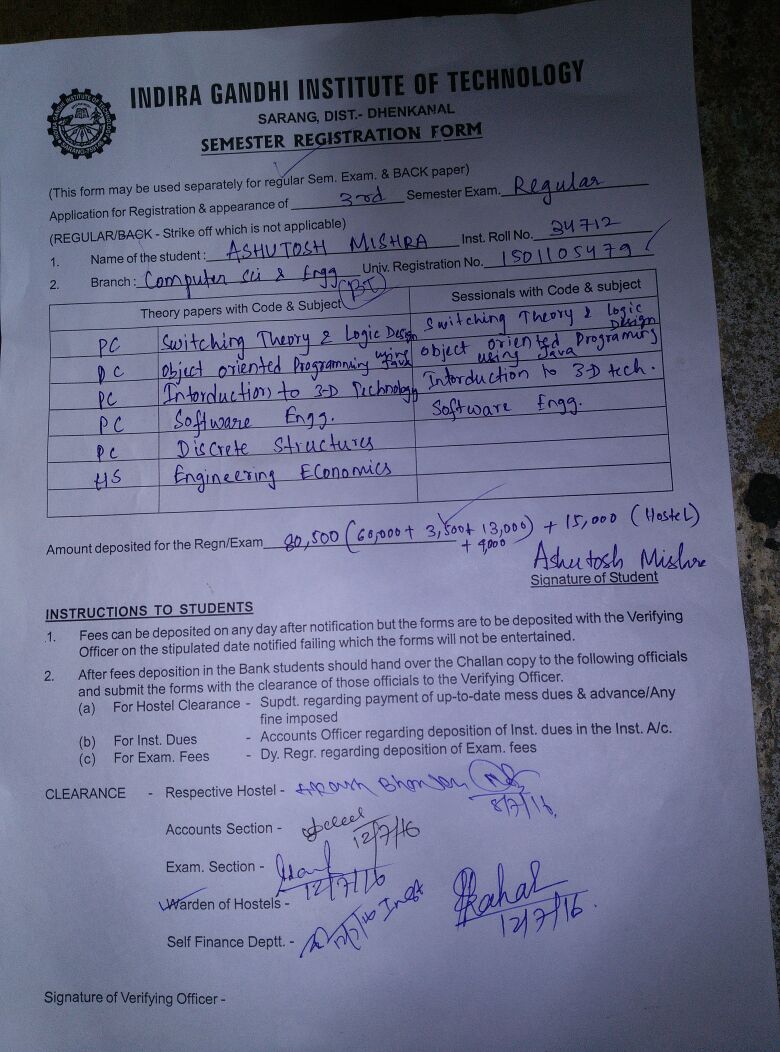 INDIRA GANDHI INSTITUTE OF TECHNOLOGY
SARANG, DIST.- DHENKANAL
SEMESTER REGISTRATION FORM
(This form may be used separately for regular Sem. Exam. & BACK paper)
Application for Registration & appearance of 3rd Semester Exam. Regular
(REGULAR/BACK - Strike off which is not applicable)
1. Name of the student : ASHUTOSH MISHRA Inst. Roll No. 34712
2. Branch : Computer Sci & Engg Univ. Registration No. 1501105479
Theory papers with Code & Subject (BT) Sessionals with Code & subject
PC Switching Theory & Logic Design Switching Theory & Logic Design
PC Object oriented Programming using Java Object oriented Programing using Java
PC Intorduction to 3-D Technology Intorduction to 3-D tech.
PC Software Engg. Software Engg.
PC Discrete Structures
HS Engineering Economics
Amount deposited for the Regn/Exam 80,500 (60,000 + 3,500 + 13,000) + 15,000 (Hostel)
+ 4,000
Ashutosh Mishra
Signature of Student
INSTRUCTIONS TO STUDENTS
1. Fees can be deposited on any day after notification but the forms are to be deposited with the Verifying
Officer on the stipulated date notified failing which the forms will not be entertained.
2. After fees deposition in the Bank students should hand over the Challan copy to the following officials
and submit the forms with the clearance of those officials to the Verifying Officer.
(a) For Hostel Clearance - Supdt. regarding payment of up-to-date mess dues & advance/Any
fine imposed
(b) For Inst. Dues - Accounts Officer regarding deposition of Inst. dues in the Inst. A/c.
(c) For Exam. Fees - Dy. Regr. regarding deposition of Exam. fees
CLEARANCE - Respective Hostel -
8/7/16
Accounts Section -
12/7/16
Exam. Section -
12/7/16
Warden of Hostels -
12/7/16.
Self Finance Deptt. -
Signature of Verifying Officer -